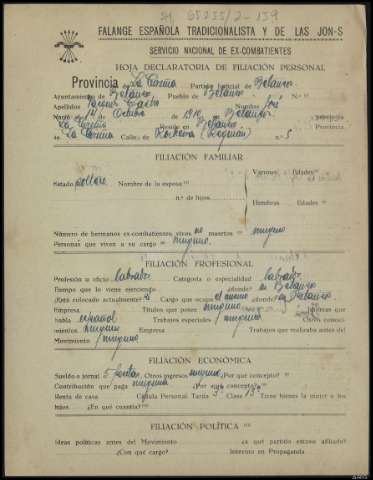 65235/2-159
FALANGE ESPAÑOLA TRADICIONALISTA Y DE LAS JON-S
SERVICIO NACIONAL DE EX-COMBATIENTES
HOJA DECLARATORIA DE FILIACIÓN PERSONAL
Provincia La Coruña Partido Judicial de Betanzos
Ayuntamiento de Betanzos Pueblo de Betanzos N.º
Apellidos José
Nació 14 de Octubre de 1910 en Betanzos provincia
La Coruña Reside en Betanzos Provincia
La Coruña Calle: de n.º 5
FILIACIÓN FAMILIAR
Varones Edades
Estado soltero Nombre de la esposa
n.º de hijos.
Hembras Edades
Número de hermanos ex-combatientes vivos no muertos ninguno
Personas que viven a su cargo ninguno
FILIACIÓN PROFESIONAL
Profesión u oficio labrador Categoría o especialidad labrador
Tiempo que lo viene ejerciendo ¿dónde? en Betanzos
¿Está colocado actualmente? si Cargo que ocupa el mismo ¿dónde? en Betanzos
Empresa Títulos que posee ninguno Idiomas que
habla español Trabajos especiales ninguno Otros conoci-
mientos ninguno Empresa Trabajos que realizaba antes del
Movimiento ninguno
FILIACIÓN ECONÓMICA
Sueldo o jornal 5 Otros ingresos ninguno ¿Por qué concepto?
Contribución que paga ninguna ¿Por qué concepto?
Renta de casa Cédula Personal Tarifa 3 Clase 13 Tiene bienes la mujer o los
hijos. ¿En qué cuantía?
FILIACIÓN POLÍTICA
Ideas políticas antes del Movimiento ¿a qué partido estuvo afiliado?
¿Con qué cargo? Intervino en Propaganda